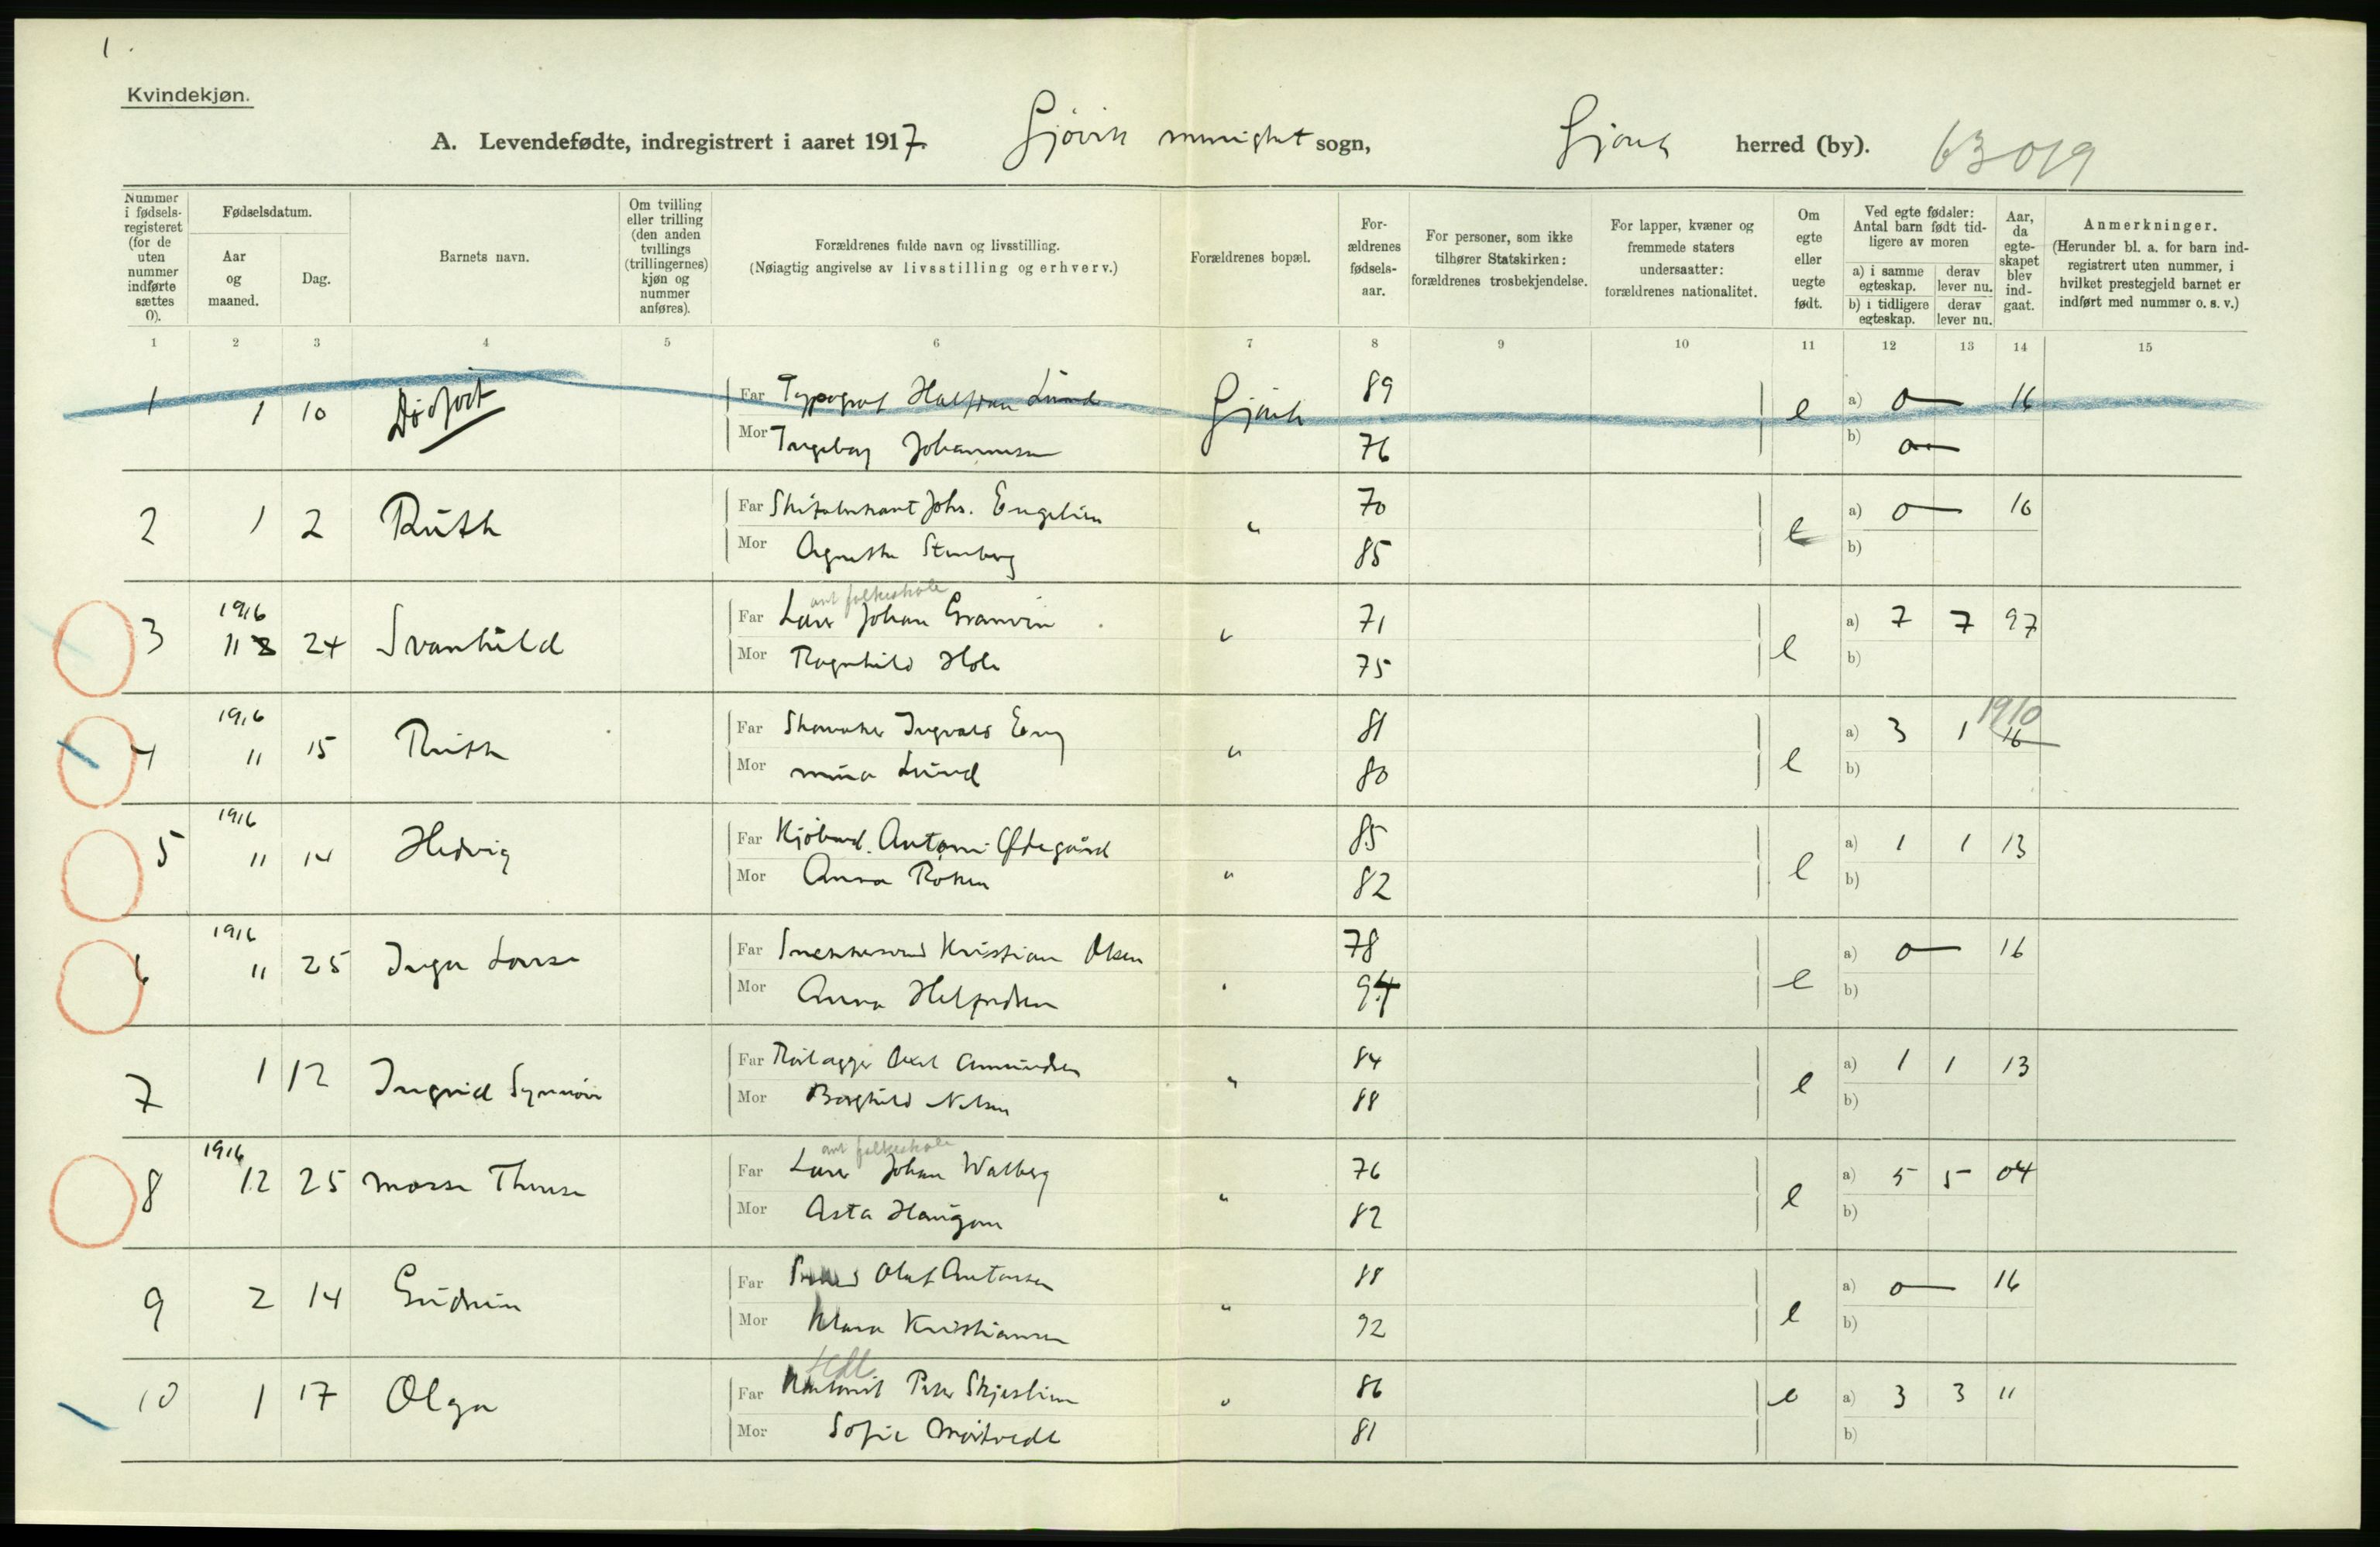 1.
Kvindekjøn.
A. Levendefødte, indregistrert i aaret 1917. Gjøvik menighet sogn, Gjøvik herred (by). 63019
Nummer i fødsels-registeret (for de uten nummer indførte sættes 0).
Fødselsdatum.
Aar og maaned.
Dag.
Barnets navn.
Om tvilling eller trilling (den anden tvillings (trillingernes) kjøn og nummer anføres).
Forældrenes fulde navn og livsstilling.
(Nøiagtig angivelse av livsstilling og erhverv.)
Forældrenes bopæl.
For-ældrenes fødsels-aar.
For personer, som ikke tilhører Statskirken: forældrenes trosbekjendelse.
For lapper, kvæner og fremmede staters undersaatter: forældrenes nationalitet.
Om egte eller uegte født.
Ved egte fødsler: Antal barn født tid-ligere av moren
a) i samme egteskap. derav lever nu.
b) i tidligere egteskap. derav lever nu.
Aar, da egte-skapet blev ind-gaat.
Anmerkninger.
(Herunder bl. a. for barn ind-registrert uten nummer, i hvilket prestegjeld barnet er indført med nummer o. s. v.)
1 2 3 4 5 6 7 8 9 10 11 12 13 14 15
1 1 10 Dødfødt Far Typograf Halfdan Lund Gjøvik 89 e a) 0 16
Mor Ingeborg Johannesen 76 b) 0
2 1 2 Ruth Far Johs. Engelien " 70 e a) 0 16
Mor Agnethe Stenberg 85 b)
amt folkeskole
3 1916 11 24 Svanhild Far Lærer Johan Granvin " 71 e a) 7 7 97
Mor Ragnhild Hole 75 b)
4 1916 11 15 Ruth Far Skomaker Ingvald Eng " 81 e a) 3 1 1910 16
Mor Mina Lund 80 b)
5 1916 11 14 Hedvig Far Kjøbmd. Anton Ødegård 85 e a) 1 1 13
Mor Anna " 82 b)
6 1916 11 25 Inga Lovise Far Snekkersvend Kristian Olsen 78 e a) 0 16
Mor Anna Helfredsen " 94 b)
7 1 12 Ingrid Synnøve Far Rørlægger Axel Amundsen " 84 e a) 1 1 13
Mor Borghild Nelsen 88 b)
amt folkeskole
8 1916 12 25 Therese Far Lærer Johan Walberg " 76 e a) 5 5 04
Mor Asta Haugom 82 b)
9 2 14 Gudrun Far Olaf Antonsen " 88 e a) 0 16
Mor Klara Kristiansen 92 b)
10 1 17 Olga Far Peter Skjeslien " 86 e a) 3 3 11
Mor Sofie 81 b)